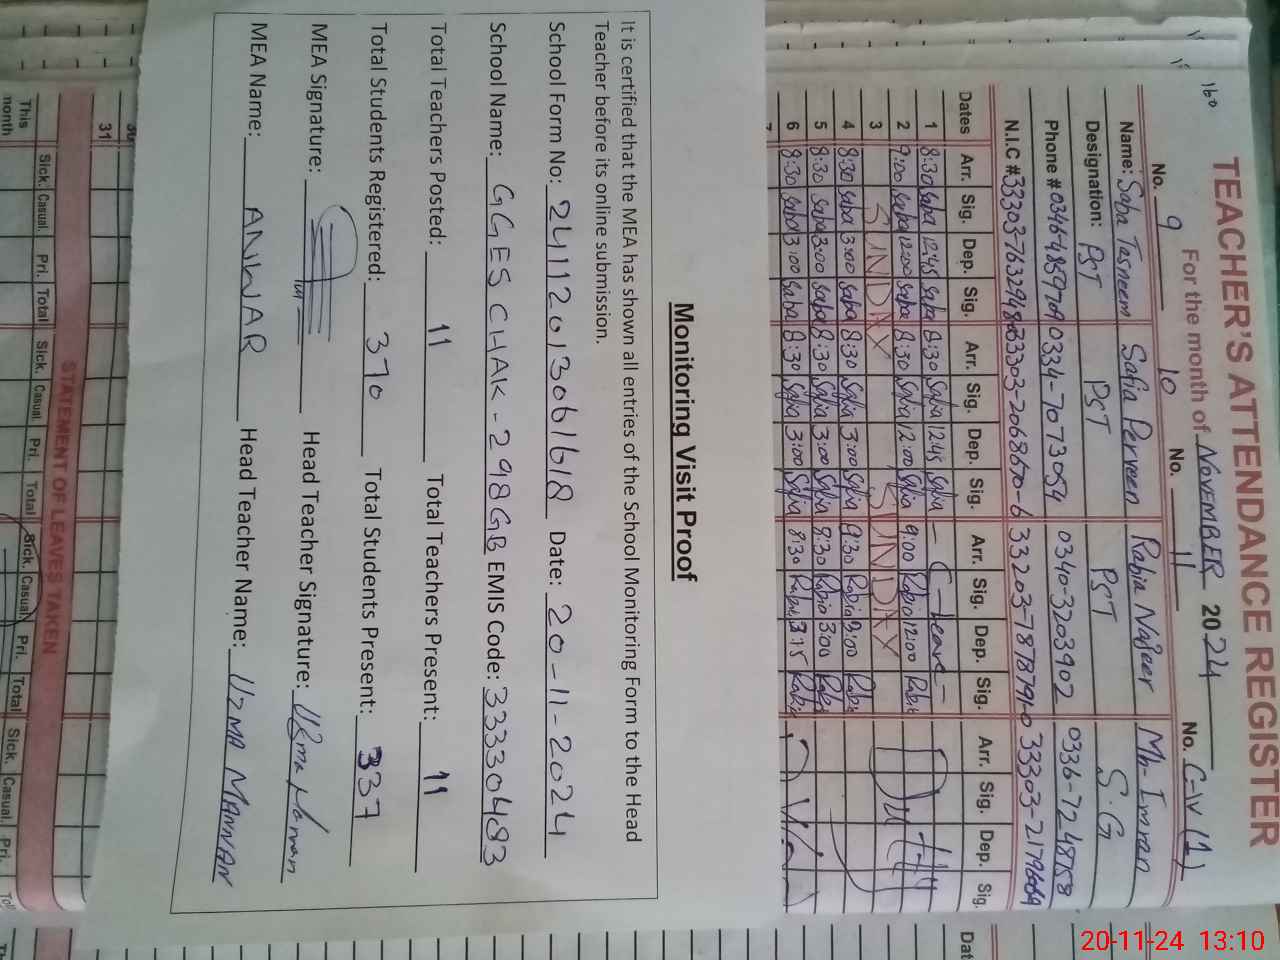 160
TEACHER'S ATTENDANCE REGISTER
For the month of NOVEMBER 2024
No. 9 No. 10 No. 11 No. C-IV (1)
Name: Saba Tasneem Safia Perveen Rabia Naseer Mh-Imran
Designation: PST PST PST S.G
Phone # 03464859709 0334-7073054 0340-3203902 0336-7248758
N.I.C #
Dates Arr. Sig. Dep. Sig. Arr. Sig. Dep. Sig. Arr. Sig. Dep. Sig. Arr. Sig. Dep. Sig. Dat
1 8:30 Saba 12:45 Saba 8:30 Safia 12:45 Safia — C-leave —
2 9:00 Saba 12:00 Saba 8:30 Safia 12:00 Safia 9:00 Rabia 12:00 Rabia
3 SUNDAY SUNDAY
4 8:30 Saba 3:00 Saba 8:30 Safia 3:00 Safia Rabia Rabia
5 8:30 Saba 3:00 Saba 8:30 Safia 3:00 Safia 8:30 Rabia 3:00 Rabia
6 8:30 Saba 3:00 Saba 8:30 Safia 3:00 Safia 8:30 Rabia 3:15 Rabia
7
Monitoring Visit Proof
It is certified that the MEA has shown all entries of the School Monitoring Form to the Head
Teacher before its online submission.
School Form No: 24112013061618 Date: 20-11-2024
School Name: GGES CHAK-298GB EMIS Code: 33330483
Total Teachers Posted: 11 Total Teachers Present: 11
Total Students Registered: 370 Total Students Present: 337
MEA Signature: Head Teacher Signature: Uzma Manan
MEA Name: ANWAR Head Teacher Name: UZMA MANNAN
30
31
STATEMENT OF LEAVES TAKEN
Sick. Casual. Pri. Total Sick. Casual Pri. Total Sick. Casual Pri. Total Sick. Casual. Pri.
This
month
20-11-24 13:10